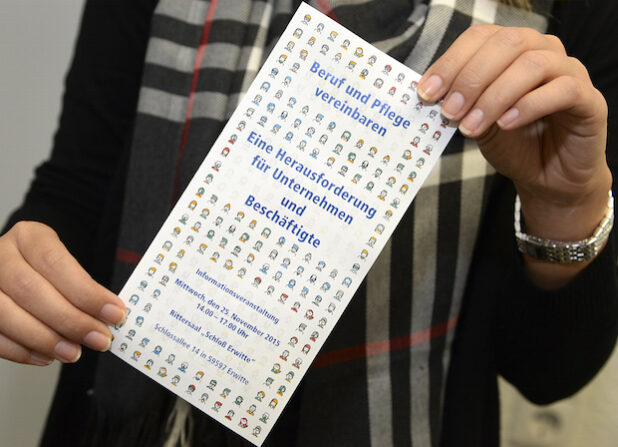 Beruf und Pflege
vereinbaren
Eine Herausforderung
für Unternehmen
und
Beschäftigte
Informationsveranstaltung
Mittwoch, den 25. November 2015
14.00 – 17.00 Uhr
Rittersaal „Schloß Erwitte"
Schlossallee 14 in 59597 Erwitte